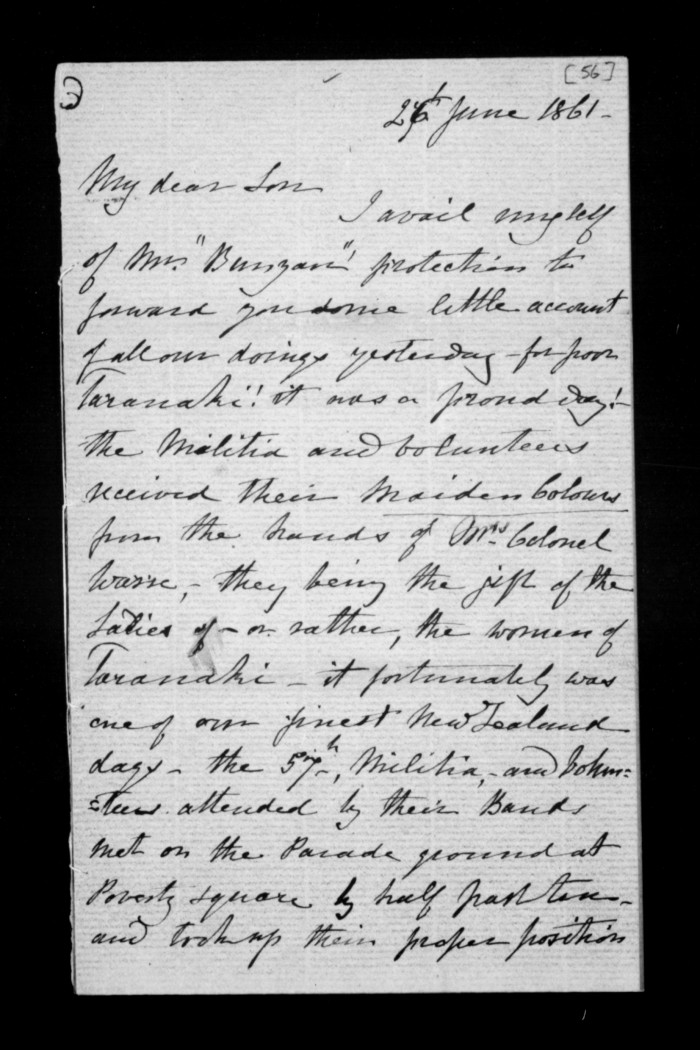 [56]
2
26th June 1861-
My dear Son
I avail myself
of Mrs "Bunyan"! protection to
forward you some little account
of all our doings yesterday - for poor
Taranaki! it was a proud day!-
the Militia and Volunteers
received their Maiden Colours
from the hands of Mrs Colonel
Warre, - they being the gift of the
Ladies of - or rather, the women of
Taranaki - it fortunately was
one of our finest New Zealand
days - the 57th, Militia, - and Volun=
=teers attended by their Bands
met on the Parade ground at
Poverty square by half past ten -
and took up their proper position